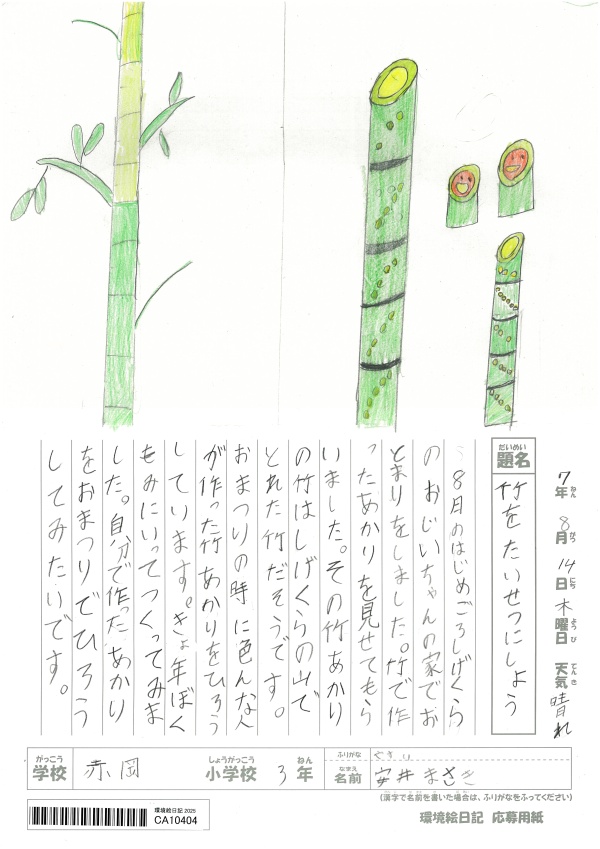 7年 8月 14日 木曜日 天気 晴れ
ねん がつ にち ようび てんき
だいめい
題名 竹をたいせつにしよう
8月のはじめごろしげくら
のおじいちゃんの家でお
とまりをしました。竹で作
ったあかりを見せてもら
いました。その竹あかり
の竹はしげくらの山で
とれた竹だそうです。
おまつりの時に色んな人
が作った竹あかりをひろう
しています。きょ年ぼく
もみにいってつくってみま
した。自分で作ったあかり
をおまつりでひろう
してみたいです。
がっこう しょうがっこう ねん ふりがな
学校 赤岡 小学校 3年
なまえ
名前 安井まさき
(漢字で名前を書いた場合は、ふりがなをふってください)
環境絵日記 2025
CA10404
環境絵日記 応募用紙